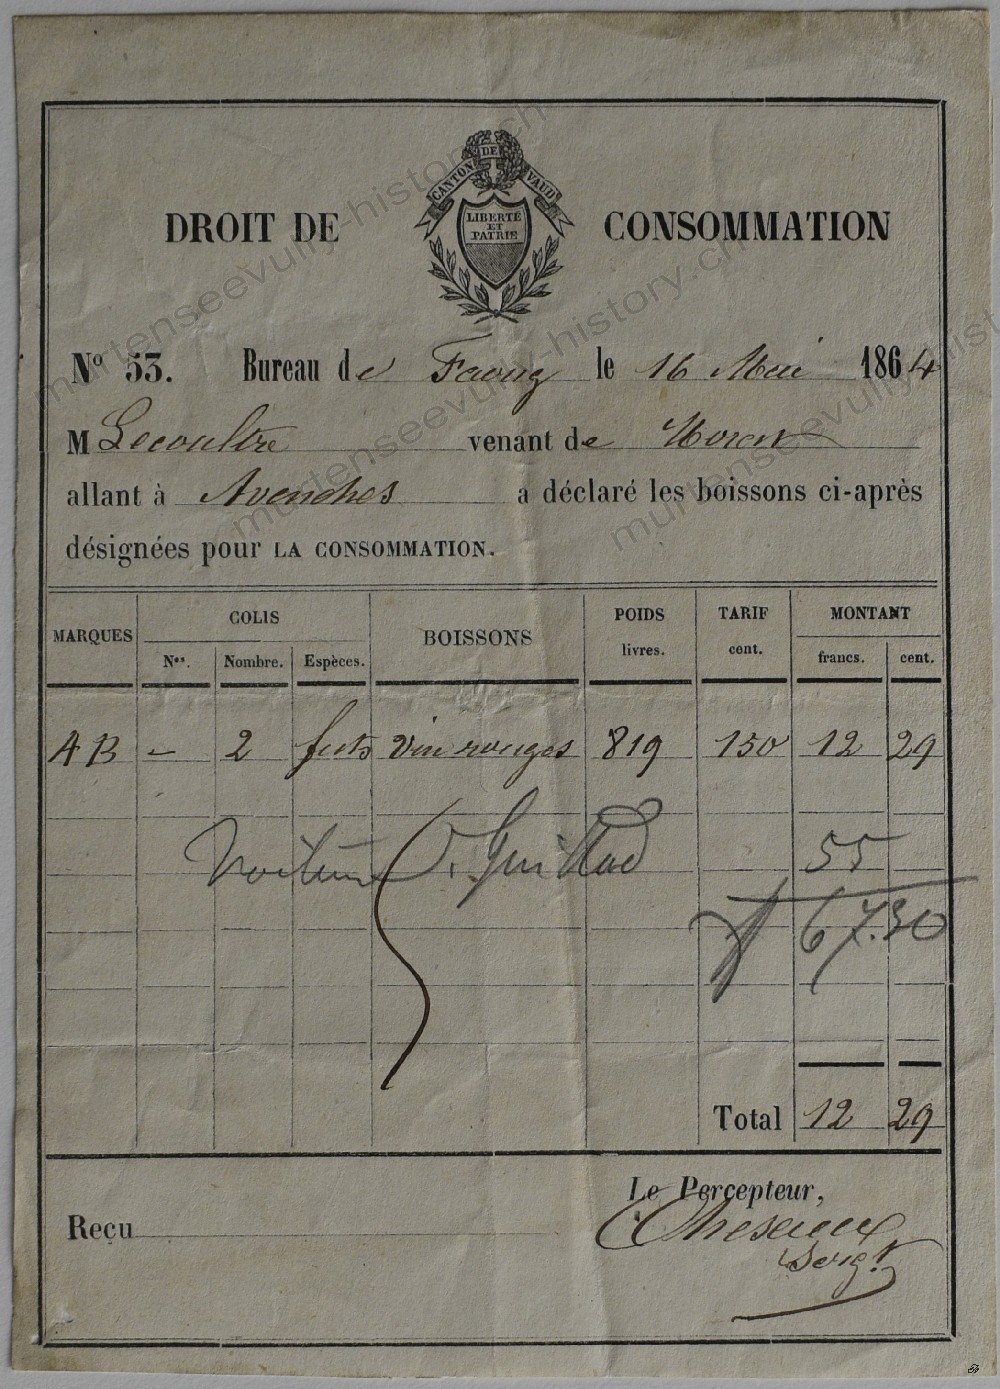 CANTON DE VAUD
LIBERTÉ
ET
PATRIE
DROIT DE CONSOMMATION
No 53. Bureau de Faoug le 16 Mai 1864
M Lecoultre venant de Morat
allant à Avenches a déclaré les boissons ci-après
désignées pour LA CONSOMMATION.
MARQUES COLIS BOISSONS POIDS TARIF MONTANT
Nos. Nombre. Espèces. livres. cent. francs. cent.
AB – 2 futs vin rouges 819 150 12 29
Voiture Guillod 55
67.30
Total 12 29
Le Percepteur,
Reçu
Chesaux
Sergt.
murtenseevully-history.ch
murtenseevully-history.ch
murtenseevully-history.ch